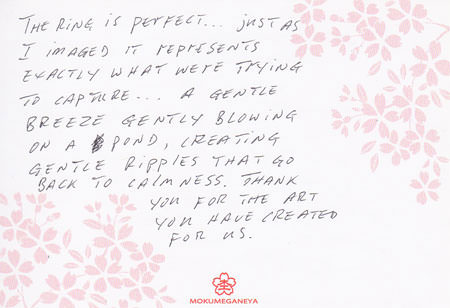 THE RING IS PERFECT... JUST AS
I IMAGED IT REPRESENTS
EXACTLY WHAT WE'RE TRYING
TO CAPTURE... A GENTLE
BREEZE GENTLY BLOWING
ON A POND, CREATING
GENTLE RIPPLES THAT GO
BACK TO CALMNESS. THANK
YOU FOR THE ART
YOU HAVE CREATED
FOR US.
MOKUMEGANEYA